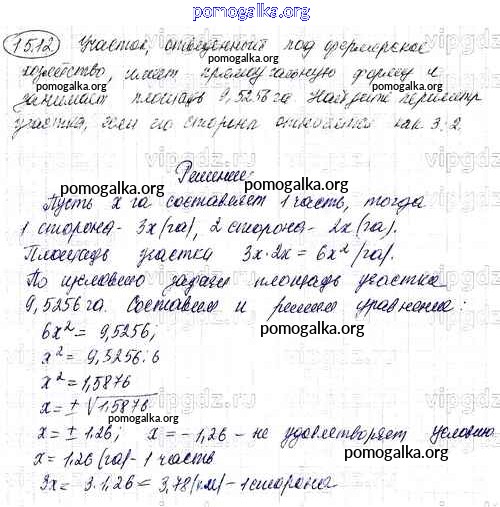 pomogalka.org
15.12 Участок, отведенный под фермерское
хозяйство, имеет прямоугольную форму и
занимает площадь 9,5256 га Найдите периметр
участка, если его стороны относятся как 3:2
pomogalka.org
Решение:
pomogalka.org
Пусть x га составляет 1 часть, тогда
1 сторона - 3x (га), 2 сторона - 2x (га).
Площадь участка 3x·2x = 6x² (га).
По условию задачи площадь участка
9,5256 га. Составим и решим уравнение:
6x² = 9,5256;
pomogalka.org
x² = 9,5256:6
x² = 1,5876
x = ± √1,5876
x = ± 1,26; x = -1,26 - не удовлетворяет условию
x = 1,26 (га) - 1 часть
3x = 3·1,26 = 3,78 (км) - 1 сторона
pomogalka.org
vipgdz.ru